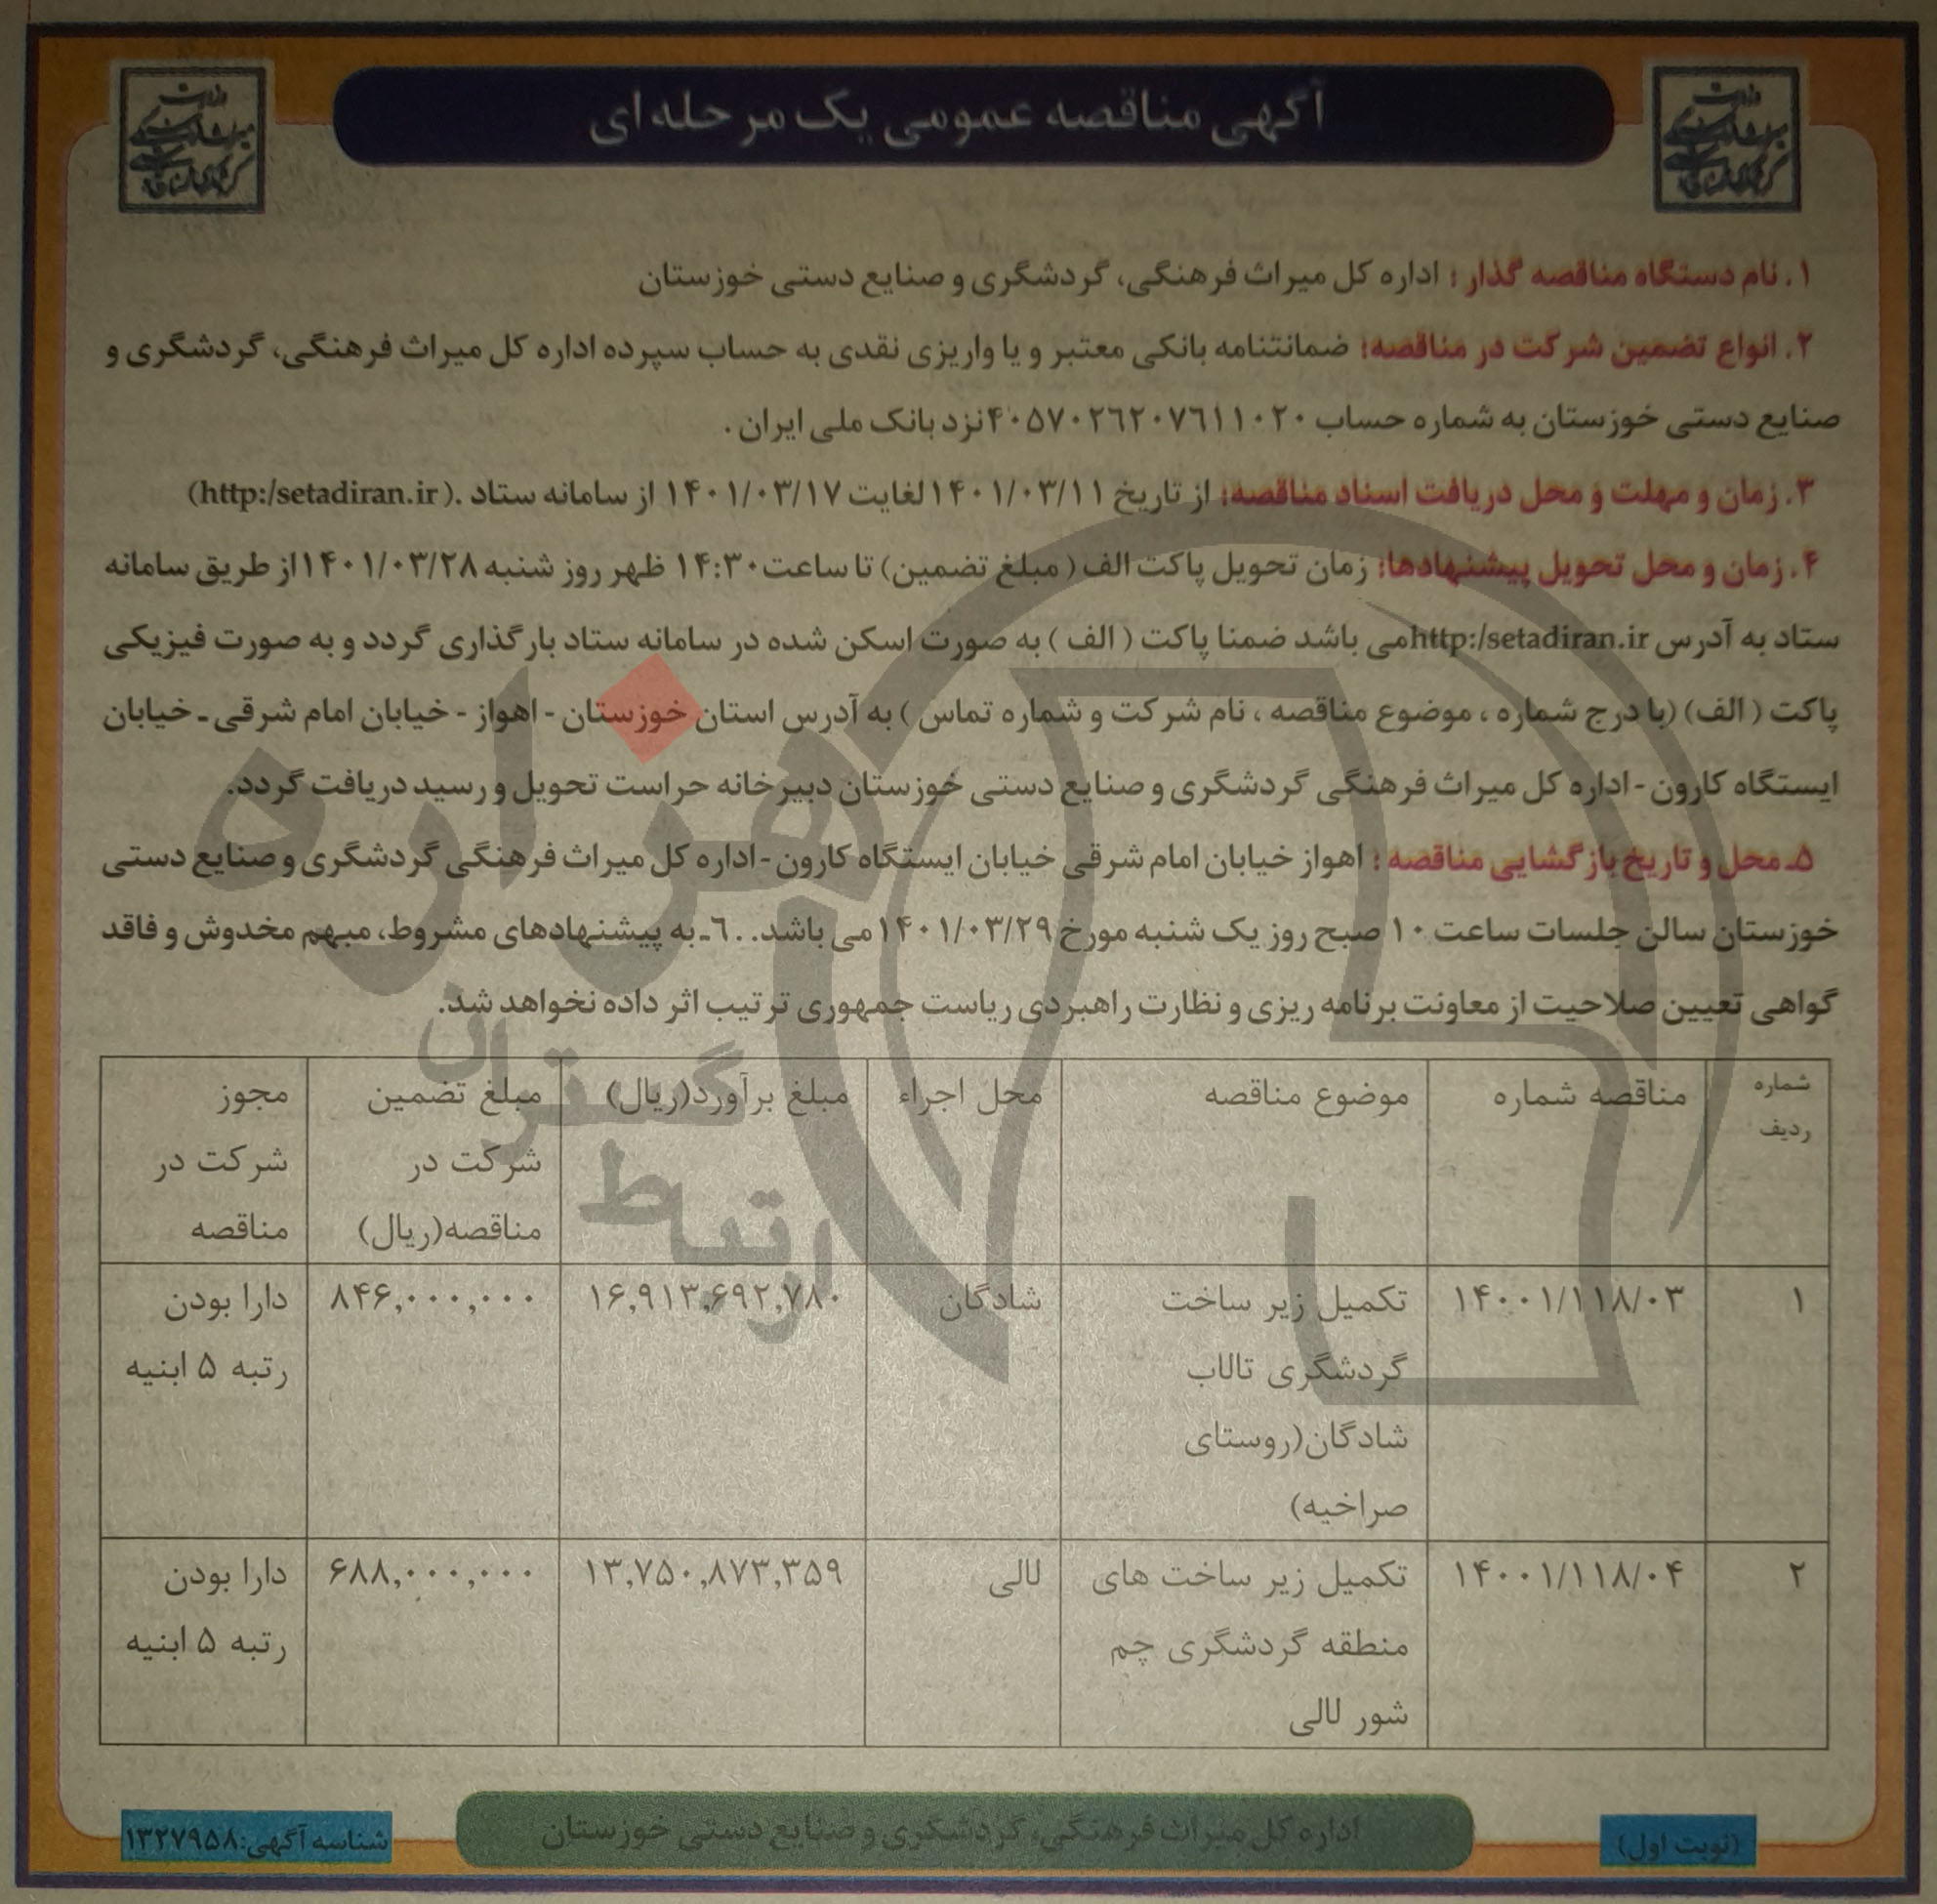 آگهی مناقصه عمومی یک مرحله ای
وزارت
میراث فرهنگی
گردشگری و صنایع دستی
وزارت
میراث فرهنگی
گردشگری و صنایع دستی
۱. نام دستگاه مناقصه گذار : اداره کل میراث فرهنگی، گردشگری و صنایع دستی خوزستان
۲. انواع تضمین شرکت در مناقصه: ضمانتنامه بانکی معتبر و یا واریزی نقدی به حساب سپرده اداره کل میراث فرهنگی، گردشگری و
صنایع دستی خوزستان به شماره حساب ۴۰۵۷۰۲۶۲۰۷۶۱۱۰۲۰ نزد بانک ملی ایران .
۳. زمان و مهلت و محل دریافت اسناد مناقصه: از تاریخ ۱۴۰۱/۰۳/۱۱ لغایت ۱۴۰۱/۰۳/۱۷ از سامانه ستاد .( http:/setadiran.ir)
۴. زمان و محل تحویل پیشنهادها: زمان تحویل پاکت الف ( مبلغ تضمین) تا ساعت ۱۴:۳۰ ظهر روز شنبه ۱۴۰۱/۰۳/۲۸ از طریق سامانه
ستاد به آدرس http:/setadiran.ir می باشد ضمنا پاکت ( الف ) به صورت اسکن شده در سامانه ستاد بارگذاری گردد و به صورت فیزیکی
پاکت ( الف) (با درج شماره ، موضوع مناقصه ، نام شرکت و شماره تماس ) به آدرس استان خوزستان - اهواز - خیابان امام شرقی ـ خیابان
ایستگاه کارون - اداره کل میراث فرهنگی گردشگری و صنایع دستی خوزستان دبیرخانه حراست تحویل و رسید دریافت گردد.
۵ـ محل و تاریخ بازگشایی مناقصه : اهواز خیابان امام شرقی خیابان ایستگاه کارون - اداره کل میراث فرهنگی گردشگری و صنایع دستی
خوزستان سالن جلسات ساعت ۱۰ صبح روز یک شنبه مورخ ۱۴۰۱/۰۳/۲۹ می باشد. . ۶ـ به پیشنهادهای مشروط، مبهم مخدوش و فاقد
گواهی تعیین صلاحیت از معاونت برنامه ریزی و نظارت راهبردی ریاست جمهوری ترتیب اثر داده نخواهد شد.
شماره ردیف مناقصه شماره موضوع مناقصه محل اجراء مبلغ برآورد(ریال) مبلغ تضمین شرکت در مناقصه(ریال) مجوز شرکت در مناقصه
۱ ۱۴۰۰۱/۱۱۸/۰۳ تکمیل زیر ساخت گردشگری تالاب شادگان(روستای صراخیه) شادگان ۱۶,۹۱۳,۶۹۲,۷۸۰ ۸۴۶,۰۰۰,۰۰۰ دارا بودن رتبه ۵ ابنیه
۲ ۱۴۰۰۱/۱۱۸/۰۴ تکمیل زیر ساخت های منطقه گردشگری چم شور لالی لالی ۱۳,۷۵۰,۸۷۳,۳۵۹ ۶۸۸,۰۰۰,۰۰۰ دارا بودن رتبه ۵ ابنیه
(نوبت اول)
اداره کل میراث فرهنگی، گردشگری و صنایع دستی خوزستان
شناسه آگهی:۱۳۲۷۹۵۸
هزاره
ارتباط گستران